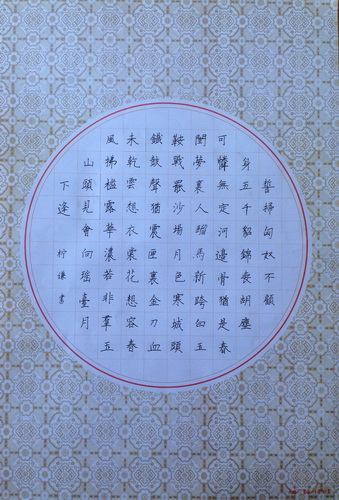 誓掃匈奴不顧
身五千貂錦喪胡塵
可憐無定河邊骨猶是春
閨夢裏人騮馬新跨白玉
鞍戰罷沙場月色寒城頭
鐵鼓聲猶震匣裏金刀血
未乾雲想衣裳花想容春
風拂檻露華濃若非羣玉
山頭見會向瑶臺月
下逢 書